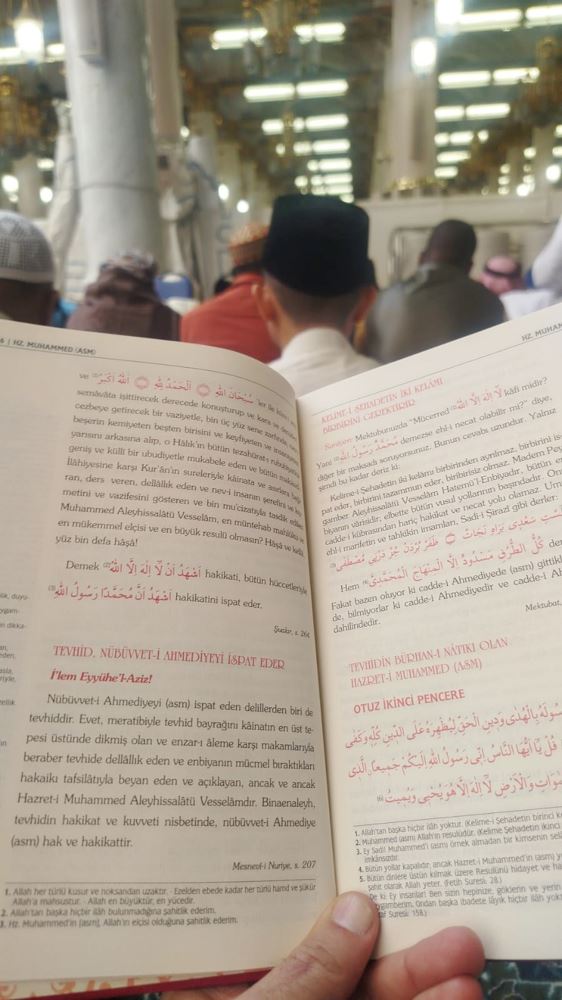 6 | HZ. MUHAMMED (ASM)
ve سُبْحَانَ اللّٰهِ ۞ اَلْحَمْدُ لِلّٰهِ ۞ اَللّٰهُ اَكْبَرُ (1) 'ler ile küre-i
semâvâta işittirecek derecede konuşturup ve kara ve denizi
cezbeye getirecek bir vaziyetle, bin üç yüz sene zarfında nev-i
beşerin kemiyeten beşten birisini ve keyfiyeten ve insaniyeten
yarısını arkasına alıp, o Hâlık'ın bütün tezahürat-ı rububiyetine
geniş ve küllî bir ubudiyetle mukabele eden ve bütün makasıd-ı
İlâhiyesine karşı Kur'ân'ın sureleriyle kâinata ve asırlara bağı-
ran, ders veren, dellâllık eden ve nev-i insanın şerefini ve kıy-
metini ve vazifesini gösteren ve bin mu'cizatıyla tasdik edilen
Muhammed Aleyhissalâtü Vesselâm, en müntehab mahlûku ve
en mükemmel elçisi ve en büyük resulü olmasın? Hâşâ ve kellâ,
yüz bin defa hâşâ!
Demek اَشْهَدُ اَنْ لَٓا اِلٰهَ اِلَّا اللّٰهُ (2) hakikati, bütün hüccetleriyle
اَشْهَدُ اَنَّ مُحَمَّدًا رَسُولُ اللّٰهِ (3) hakikatini ispat eder.
Şualar, s. 264
TEVHİD, NÜBÜVVET-İ AHMEDİYEYİ İSPAT EDER
İ'lem Eyyühe'l-Aziz!
Nübüvvet-i Ahmediyeyi (asm) ispat eden delillerden biri de
tevhiddir. Evet, meratibiyle tevhid bayrağını kâinatın en üst te-
pesi üstünde dikmiş olan ve enzar-ı âleme karşı makamlarıyla
beraber tevhide dellâllık eden ve enbiyanın mücmel bıraktıkları
hakaikı tafsilâtıyla beyan eden ve açıklayan, ancak ve ancak
Hazret-i Muhammed Aleyhissalâtü Vesselâmdır. Binaenaleyh,
tevhidin hakikat ve kuvveti nisbetinde, nübüvvet-i Ahmediye
(asm) hak ve hakikattir.
Mesnevî-i Nuriye, s. 207
1. Allah her türlü kusur ve noksandan uzaktır. · Ezelden ebede kadar her türlü hamd ve şükür
Allah'a mahsustur. · Allah en büyüktür, en yücedir.
2. Allah'tan başka hiçbir ilâh bulunmadığına şahitlik ederim.
3. Hz. Muhammed'in (asm), Allah'ın elçisi olduğuna şahitlik ederim.
HZ. MUHAM
KELİME-İ ŞEHADETİN İKİ KELÂMI
BİRBİRİNİ GEREKTİRİR
Saniyen: Mektubunuzda "Mücerred لَٓا اِلٰهَ اِلَّا اللّٰهُ (1) kâfi midir?
Yani مُحَمَّدٌ رَسُولُ اللّٰهِ (2) demezse ehl-i necat olabilir mi?" diye,
diğer bir maksadı soruyorsunuz. Bunun cevabı uzundur. Yalnız
şimdi bu kadar deriz ki:
Kelime-i Şehadetin iki kelâmı birbirinden ayrılmaz, birbirini is-
pat eder, birbirini tazammun eder, birbirisiz olmaz. Madem Pey-
gamber Aleyhissalâtü Vesselâm Hatemü'l-Enbiyadır, bütün en-
biyanın vârisidir; elbette bütün vusul yollarının başındadır. Onun
cadde-i kübrasından hariç hakikat ve necat yolu olamaz. Um
ehl-i marifetin ve tahkikin imamları, Sadi-i Şirazî gibi derler:
سْت سَعْدِى بَرَاهِ نَجَاتْ ۞ ظَفَرْ بُرْدَنْ جُزْ دَرْ پَىِ مُصْطَفٰى (3)
Hem كُلُّ الطُّرُقِ مَسْدُودٌ اِلَّا الْمِنْهَاجَ الْمُحَمَّدِىَّ (4) der
Fakat bazen oluyor ki cadde-i Ahmediyede (asm) gittikl
de, bilmiyorlar ki cadde-i Ahmediyedir ve cadde-i Ah
dahilindedir.
Mektubat,
TEVHİDİN BÜRHAN-I NÂTIKI OLAN
HAZRET-İ MUHAMMED (ASM)
OTUZ İKİNCİ PENCERE
سُولَهُ بِالْهُدٰى وَدِينِ الْحَقِّ لِيُظْهِرَهُ عَلَى الدِّينِ كُلِّهِ وَكَفٰى
قُلْ يَٓا اَيُّهَا النَّاسُ اِنِّى رَسُولُ اللّٰهِ اِلَيْكُمْ جَمِيعًا الَّذِى
مٰوَاتِ وَالْاَرْضِ لَٓا اِلٰهَ اِلَّا هُوَ يُحْيِى وَيُمِيتُ (6)
1. Allah'tan başka hiçbir ilâh yoktur. (Kelime-i Şehadetin birinci ke
2. Muhammed (asm) Allah'ın resulüdür. (Kelime-i Şehadetin ikinci
3. Ey Sadi! Muhammed'i (asm) örnek almadan bir kimsenin sel
imkânsızdır.
4. Bütün yollar kapalıdır, ancak Hazret-i Muhammed'in (asm) y
5. Bütün dinlere üstün kılmak üzere Resulünü hidayet ve ha
şahit olarak Allah yeter. (Fetih Suresi: 28.)
De ki: Ey insanlar! Ben sizin hepinize, göklerin ve yerin
ygamberim. Ondan başka ibadete lâyık hiçbir ilâh yok
af Suresi: 158.)